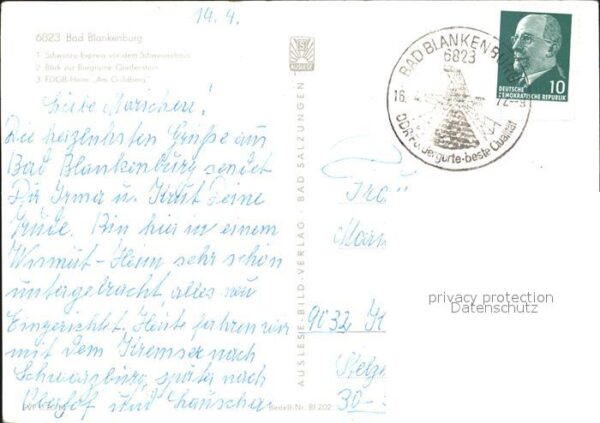 14. 4.
6823 Bad Blankenburg
1 Schwarza-Express vor dem Schweizerhaus
2 Blick zur Burgruine Greifenstein
3 FDGB-Heim „Am Goldberg"
Liebe Mariechen!
Die herzlichsten Grüße aus
Bad Blankenburg sendet
Dir Irma u. Kurt Deine
Trude. Bin hier in einem
Wismut-Heim sehr schön
untergebracht, alles neu
Eingerichtet. Heute fahren wir
mit dem Kremser nach
Schwarzburg, später nach
Oberhof und Lauscha
Bestell-Nr. Bl 202
AUSLESE-BILD-VERLAG · BAD SALZUNGEN
BAD BLANKENBURG
6823
16.
72-9
beste Qualität
10
DEUTSCHE
DEMOKRATISCHE REPUBLIK
Frau
9032
30-
privacy protection
Datenschutz